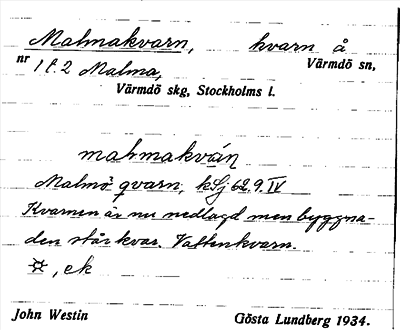 Malmakvarn, kvarn å
nr 1 o. 2 Malma, Värmdö sn,
Värmdö skg, Stockholms l.
malmakván
Malmö qvarn, kSj 62.9. IV
Kvarnen är nu nedlagd men byggna-
den står kvar. Vattenkvarn.
¤, ek
John Westin Gösta Lundberg 1934.